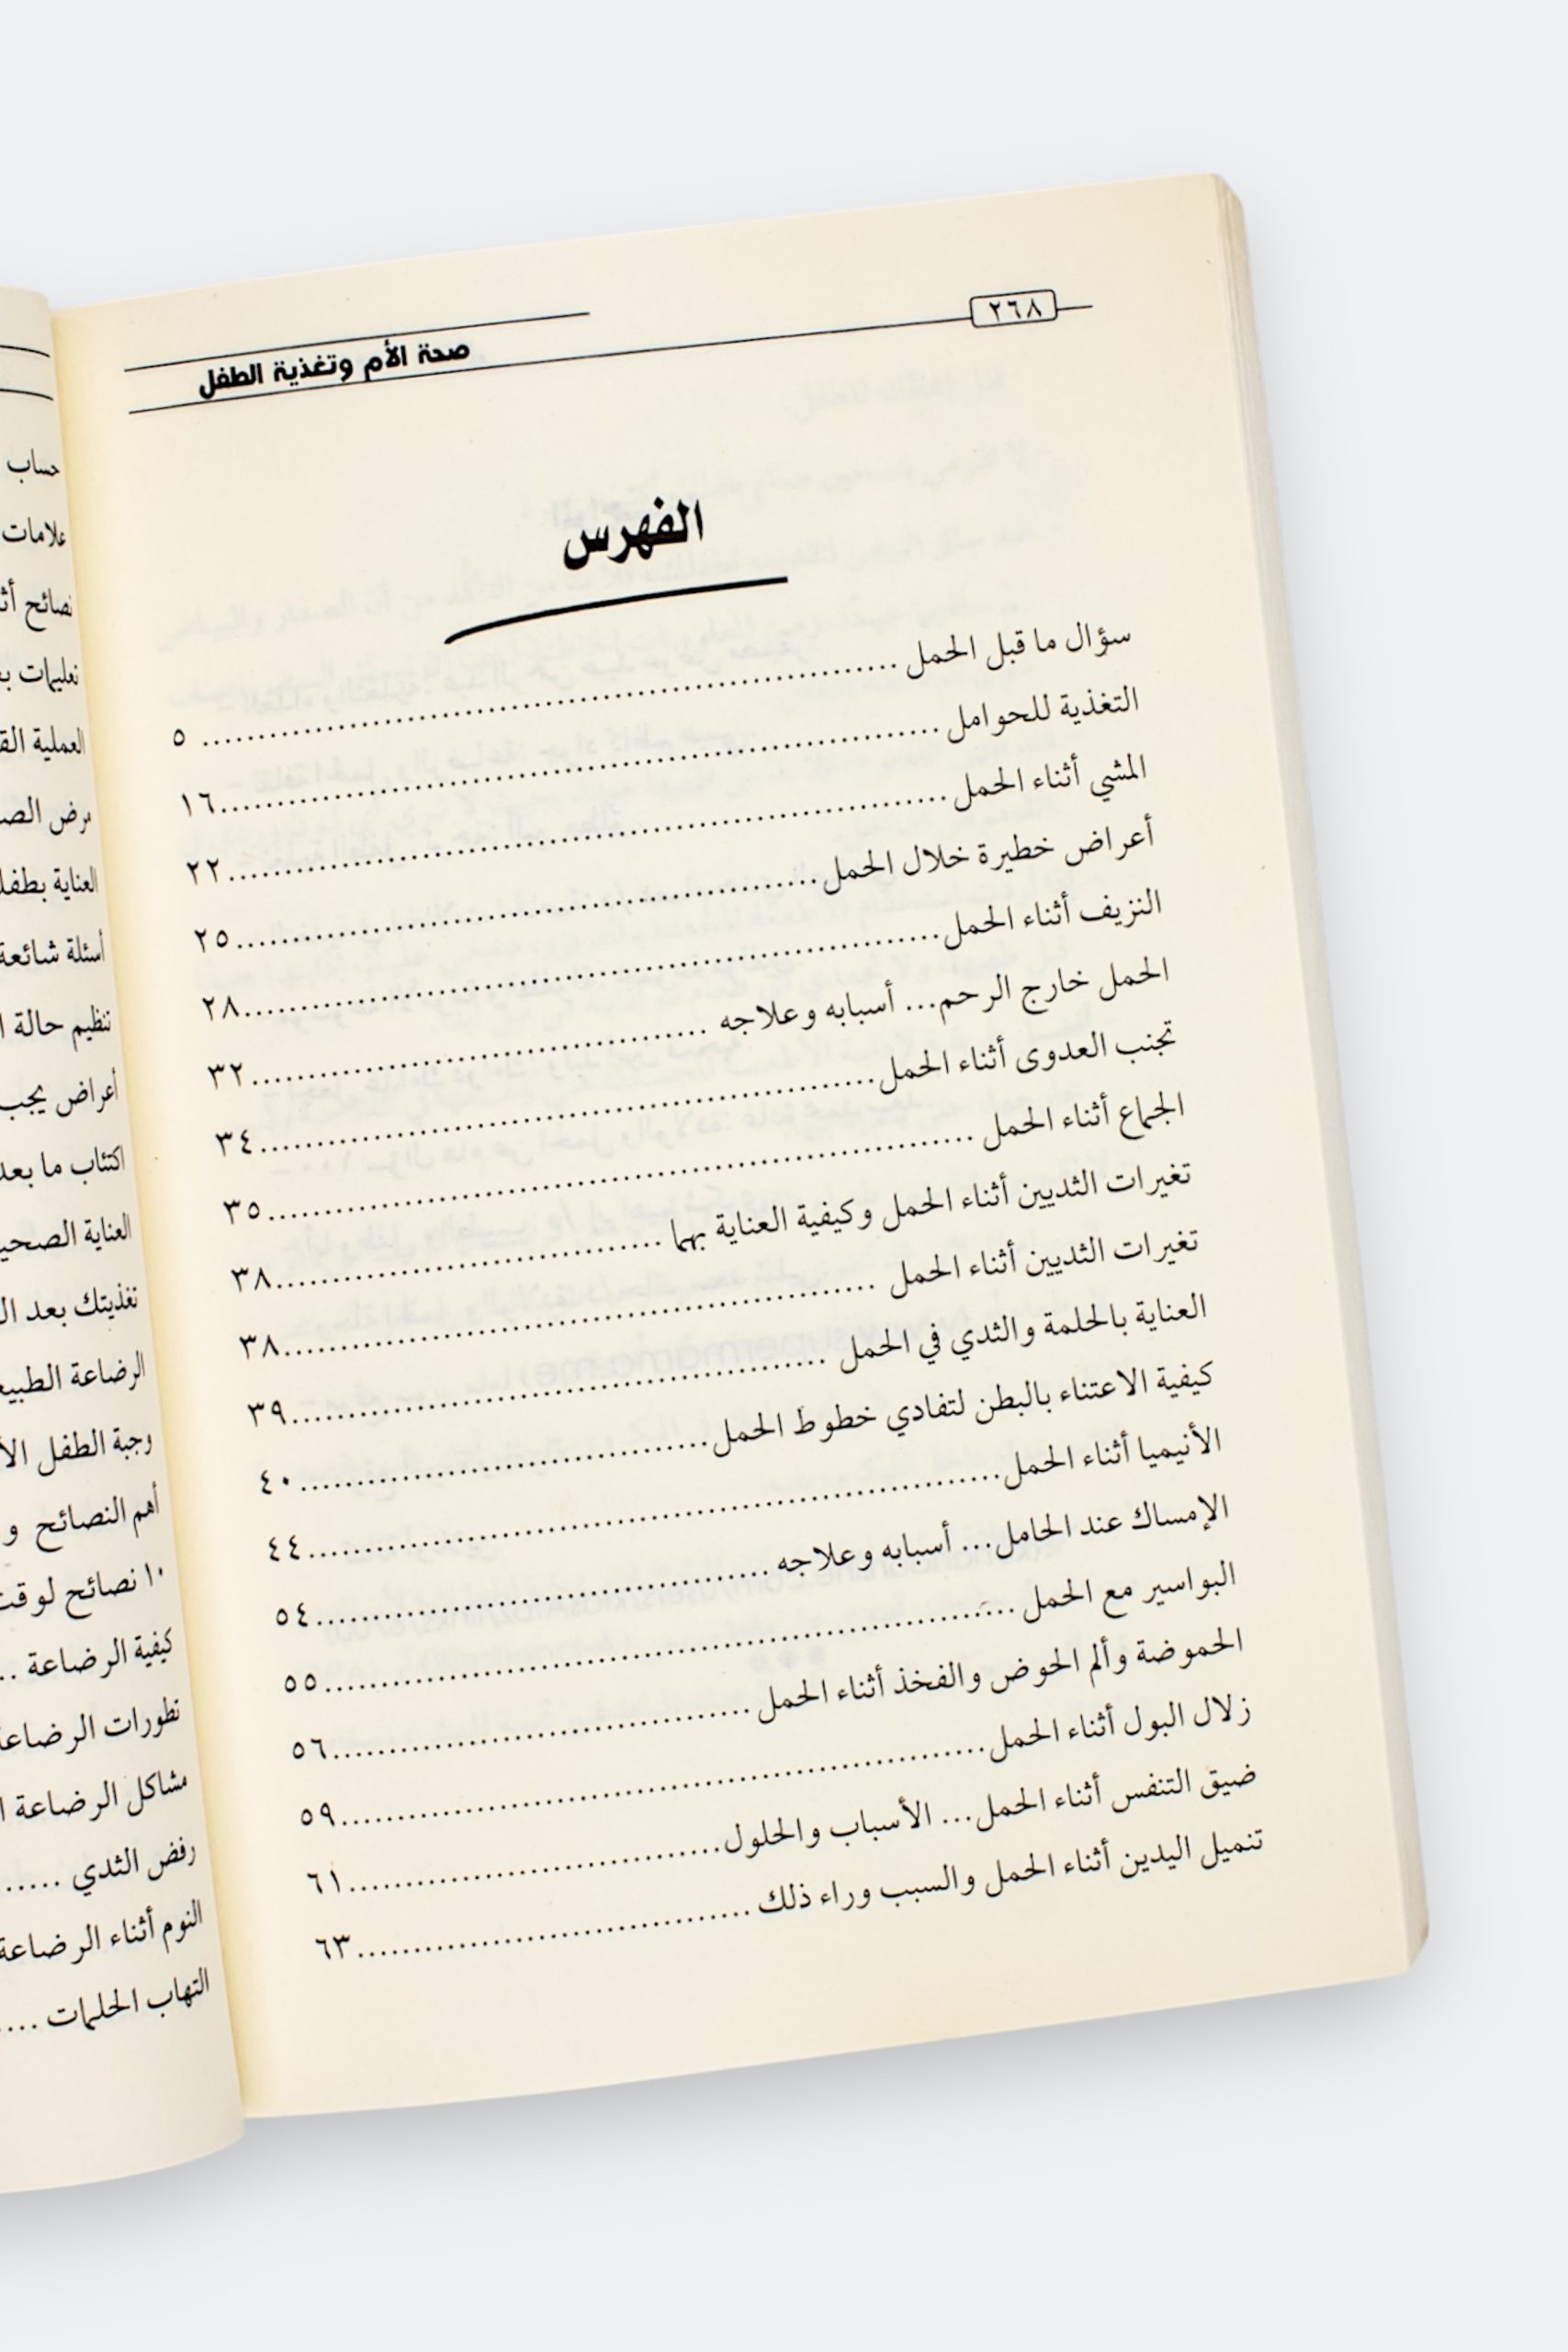 ٢٦٨
صحة الأم وتغذية الطفل
الفهرس
سؤال ما قبل الحمل ........ ٥
التغذية للحوامل ........ ١٦
المشي أثناء الحمل ........ ٢٢
أعراض خطيرة خلال الحمل ........ ٢٥
النزيف أثناء الحمل ........ ٢٨
الحمل خارج الرحم... أسبابه وعلاجه ........ ٣٢
تجنب العدوى أثناء الحمل ........ ٣٤
الجماع أثناء الحمل ........ ٣٥
تغيرات الثديين أثناء الحمل وكيفية العناية بهما ........ ٣٨
تغيرات الثديين أثناء الحمل ........ ٣٨
العناية بالحلمة والثدي في الحمل ........ ٣٩
كيفية الاعتناء بالبطن لتفادي خطوط الحمل ........ ٤٠
الأنيميا أثناء الحمل ........ ٤٤
الإمساك عند الحامل... أسبابه وعلاجه ........ ٥٤
البواسير مع الحمل ........ ٥٥
الحموضة وألم الحوض والفخذ أثناء الحمل ........ ٥٦
زلال البول أثناء الحمل ........ ٥٩
ضيق التنفس أثناء الحمل... الأسباب والحلول ........ ٦١
تنميل اليدين أثناء الحمل والسبب وراء ذلك ........ ٦٣
حساب
علامات
نصائح
تعليمات
العملية
مرض
العناية
أسئلة شائعة
تنظيم حالة
أعراض يجب
اكتئاب ما بعد
العناية
تغذيتك بعد
الرضاعة
وجبة الطفل
أهم النصائح و
١٠ نصائح
كيفية الرضاعة ..
تطورات
مشاكل الرضاعة
رفض الثدي ......
النوم أثناء الرضاعة
التهاب الحلمات ....